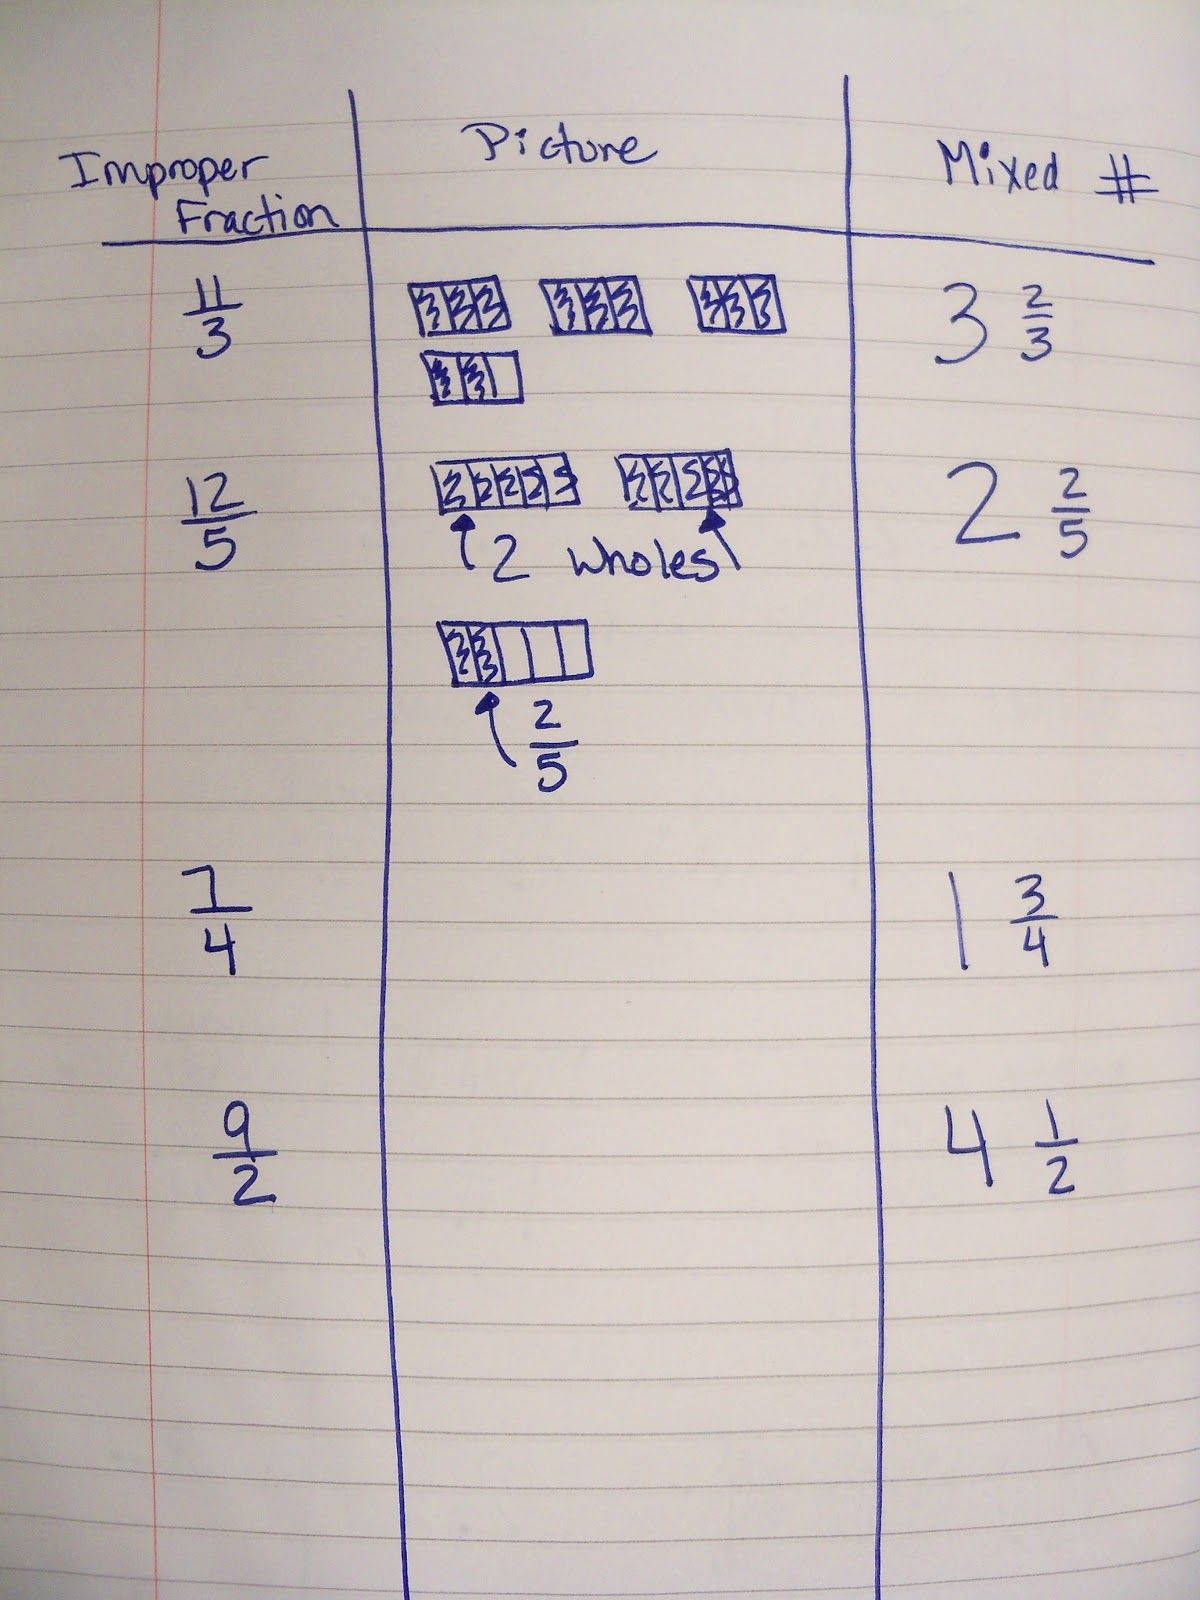 Improper
Fraction
Picture
Mixed #
11/3
3 2/3
12/5
2 wholes
2 2/5
2/5
7/4
1 3/4
9/2
4 1/2